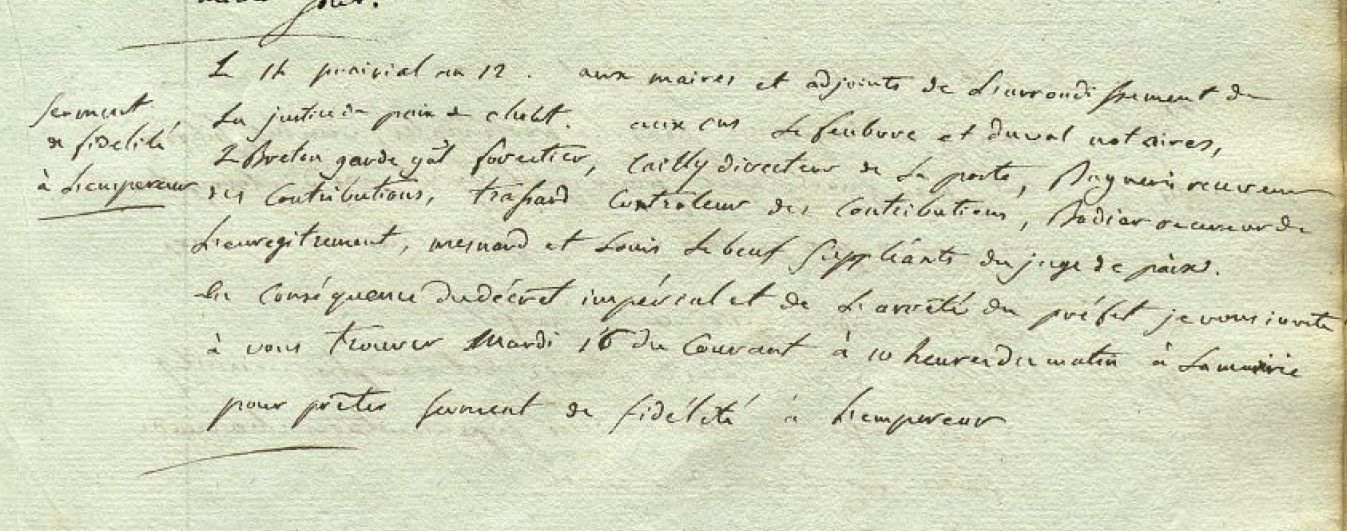 jour.
Le 14 prairial an 12. aux maires et adjoints de L'arrondissement de
serment
de fidelité
à L'empereur
La justice de paix de . aux cns Lefeubvre et duval notaires,
LeBreton garde gal forestier, Cailly directeur de La poste, receveur
des Contributions, trassard Controleur des Contributions, Badier receveur de
L'enregitrement, mesnard et Louis Lebeuf suppléants du juge de paix.
En Conséquence du décret impérial et de L'arrêté du préfet je vous invite
à vous trouver Mardi 16 du Courant à 10 heures du matin à La mairie
pour prêter serment de fidélité à L'empereur